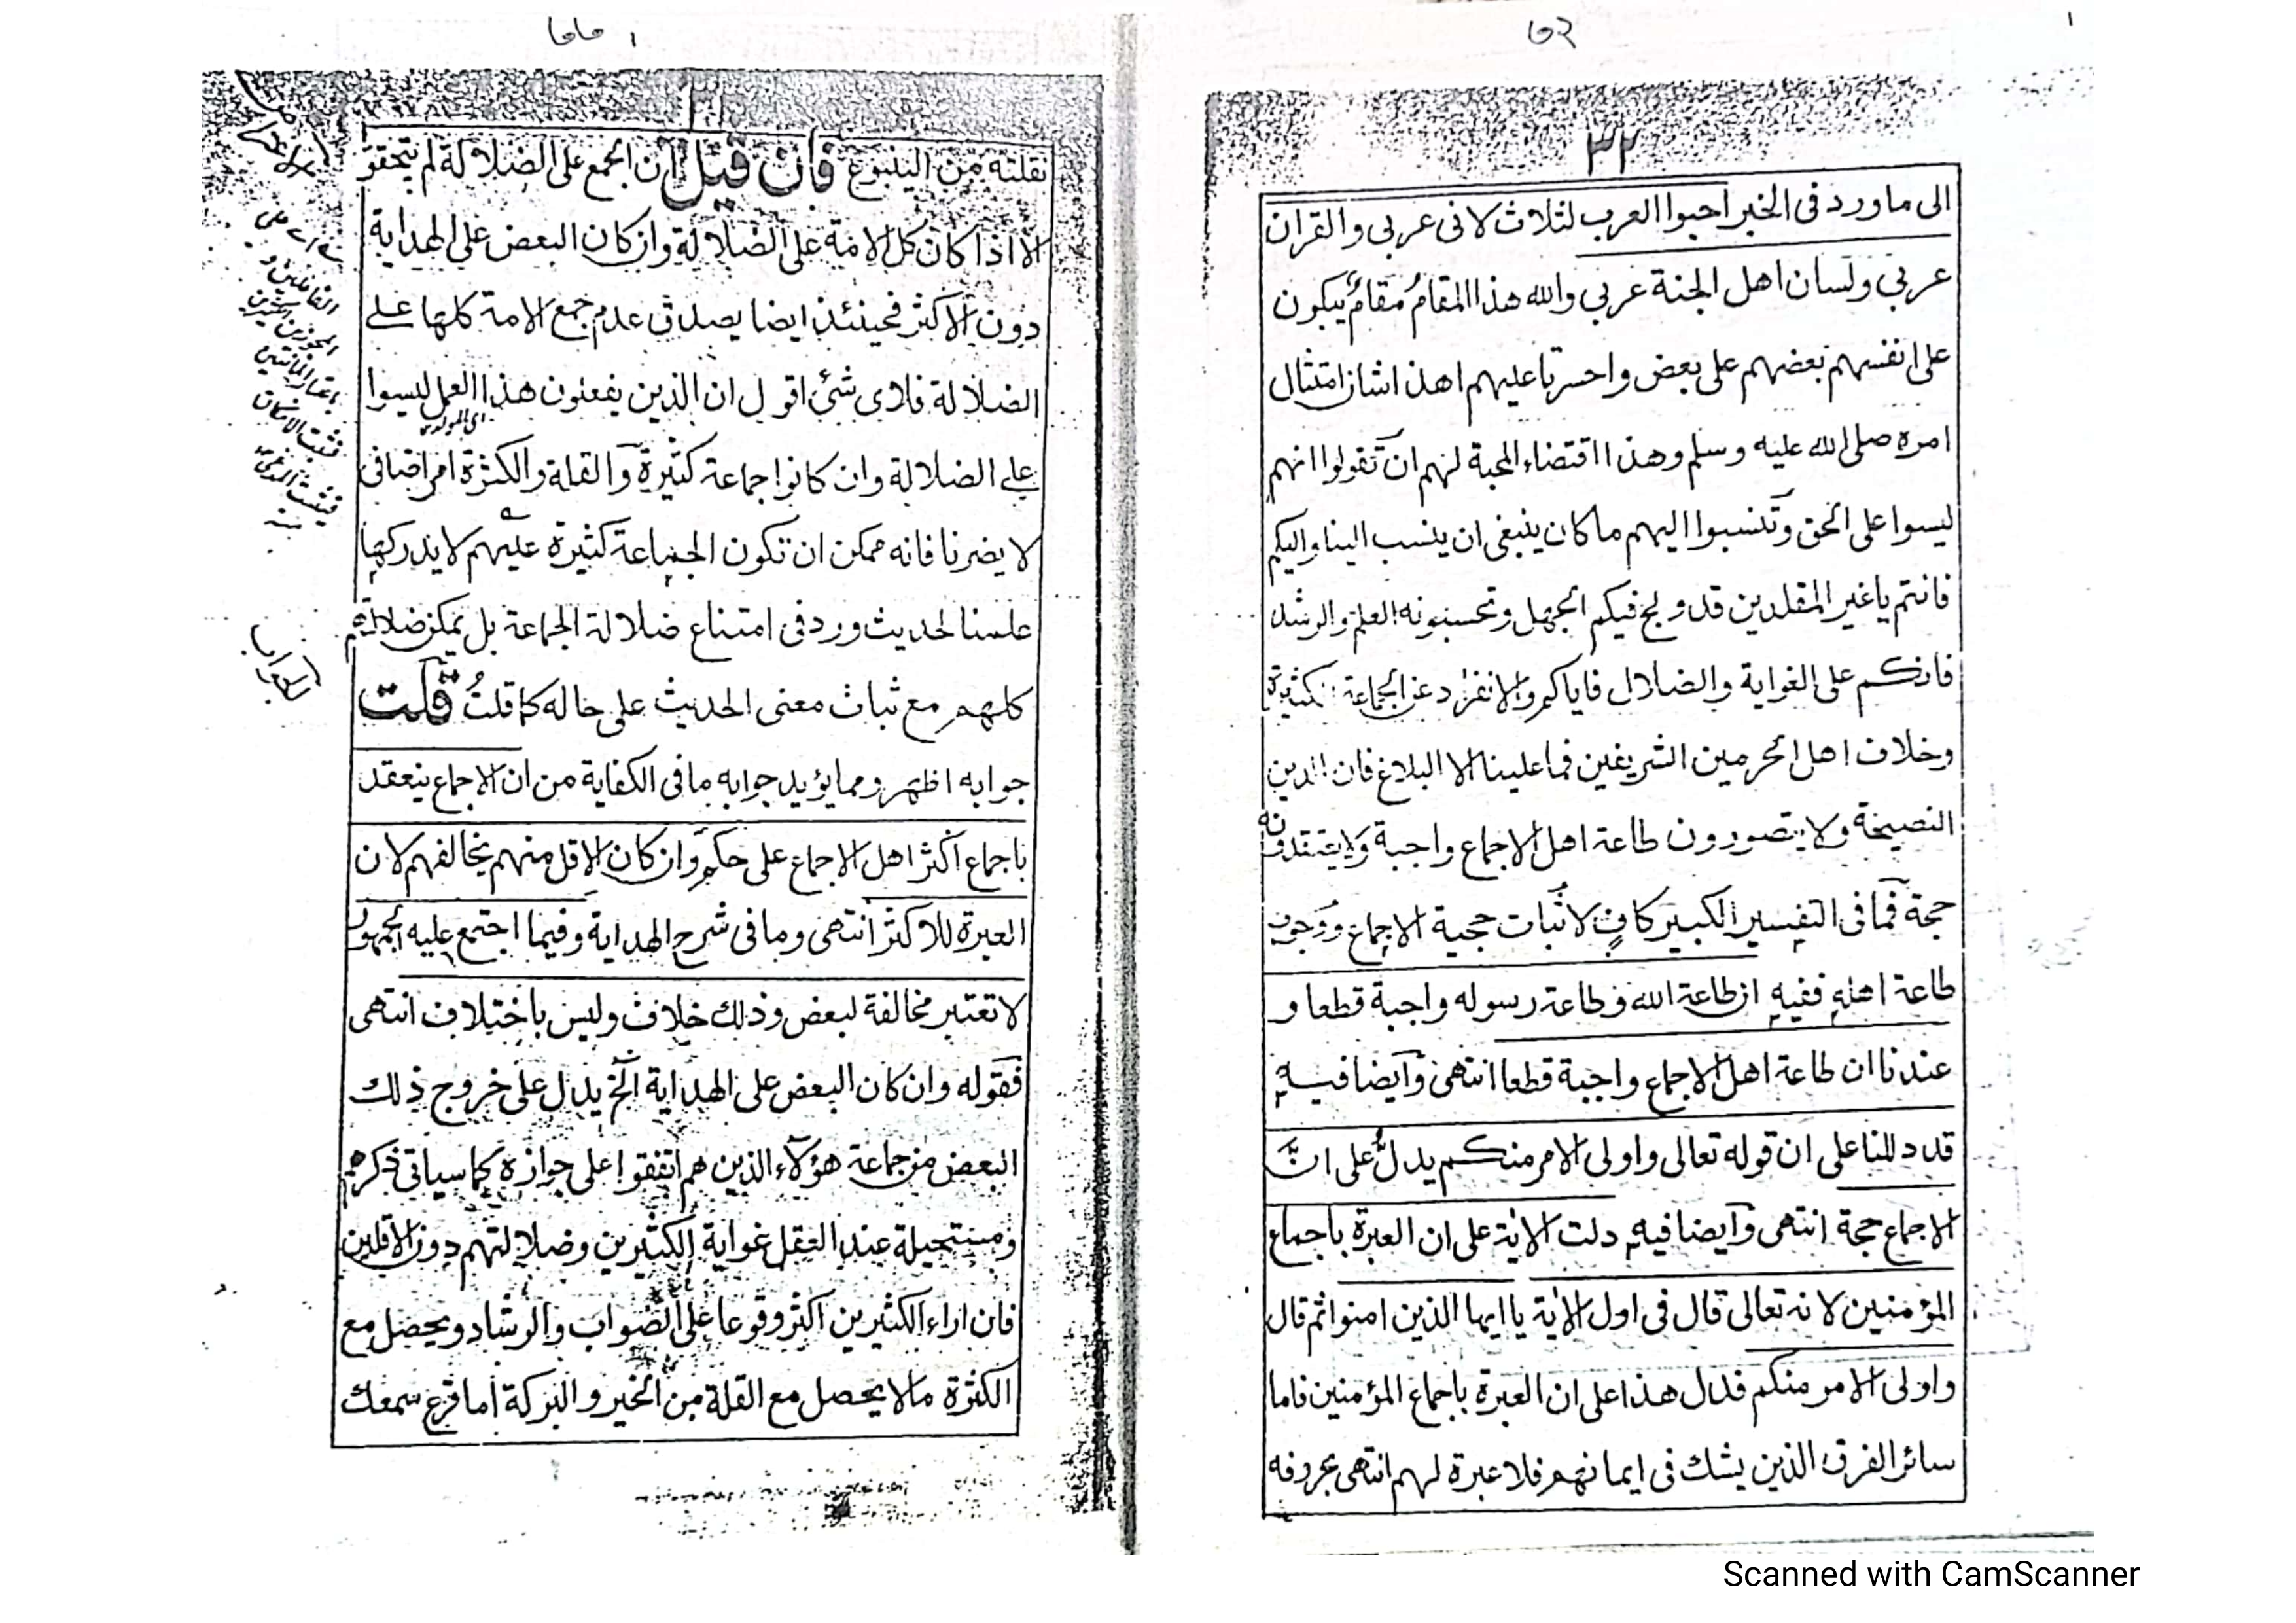 ٣٢
الى ما ورد فى الخبر احبوا العرب لثلاث لانى عربى والقران
عربى ولسان اهل الجنة عربى والله هذا المقام مقام يبكون
على انفسهم بعضهم على بعض واحسرتا عليهم اهذا شان امتثال
امره صلى الله عليه وسلم وهذا اقتضاء المحبة لهم ان تقولوا انهم
ليسوا على الحق وتنسبوا اليهم ما كان ينبغى ان ينسب الينا واليكم
فانتم يا غير المقلدين قد ولج فيكم الجهل وتحسبونه العلم والرشد
فانكم على الغواية والضلال فاياكم والانفراد عن الجماعة الكثيرة
وخلاف اهل الحرمين الشريفين فما علينا الا البلاغ فان الدين
النصيحة ولا يتصورون طاعة اهل الاجماع واجبة ولا يعتقدونه
حجة فما فى التفسير الكبير كاف لاثبات حجية الاجماع ووجوب
طاعة اهله ففيه ان طاعة الله وطاعة رسوله واجبة قطعا و
عندنا ان طاعة اهل الاجماع واجبة قطعا انتهى وايضا فيه
قد دللنا على ان قوله تعالى واولى الامر منكم يدل على ان
الاجماع حجة انتهى وايضا فيه دلت الاية على ان العبرة باجماع
المؤمنين لانه تعالى قال فى اول الاية يا ايها الذين امنوا ثم قال
واولى الامر منكم فدل هذا على ان العبرة باجماع المؤمنين فاما
سائر الفرق الذين يشك فى ايمانهم فلا عبرة لهم انتهى بحروفه
نقلته من الينبوع فان قيل ان الجمع على الضلالة لم يتحقق
الا اذا كان كل الامة على الضلالة وان كان البعض على الهداية
دون الاكثر فحينئذ ايضا يصدق عدم جمع الامة كلها على
الضلالة فلاى شئ اقول ان الذين يفعلون هذا العمل ليسوا
اى المولد
على الضلالة وان كانوا جماعة كثيرة والقلة والكثرة امر اضافى
لا يضرنا فانه ممكن ان تكون الجماعة كثيرة عليهم لا يدركها
علمنا لحديث ورد فى امتناع ضلالة الجماعة بل يمكن ضلالتهم
كلهم مع ثبات معنى الحديث على حاله كما قلت قلت
جوابه اظهر ومما يؤيد جوابه ما فى الكفاية من ان الاجماع ينعقد
باجماع اكثر اهل الاجماع على حكم وان كان الاقل منهم يخالفهم لان
العبرة للاكثر انتهى وما فى شرح الهداية وفيما اجتمع عليه الجمهور
لا تعتبر مخالفة لبعض وذلك خلاف وليس باختلاف انتهى
فقوله وان كان البعض على الهداية الخ يدل على خروج ذلك
البعض من جماعة هؤلاء الذين هم اتفقوا على جوازه كما سياتى ذكرهم
ومستحيلة عند العقل غواية الكثيرين وضلالتهم دون الاقلين
فان اراء الكثيرين اكثر وقوعا على الصواب والرشاد ويحصل مع
الكثرة ما لا يحصل مع القلة من الخير والبركة اما قرع سمعك
الجواب
Scanned with CamScanner